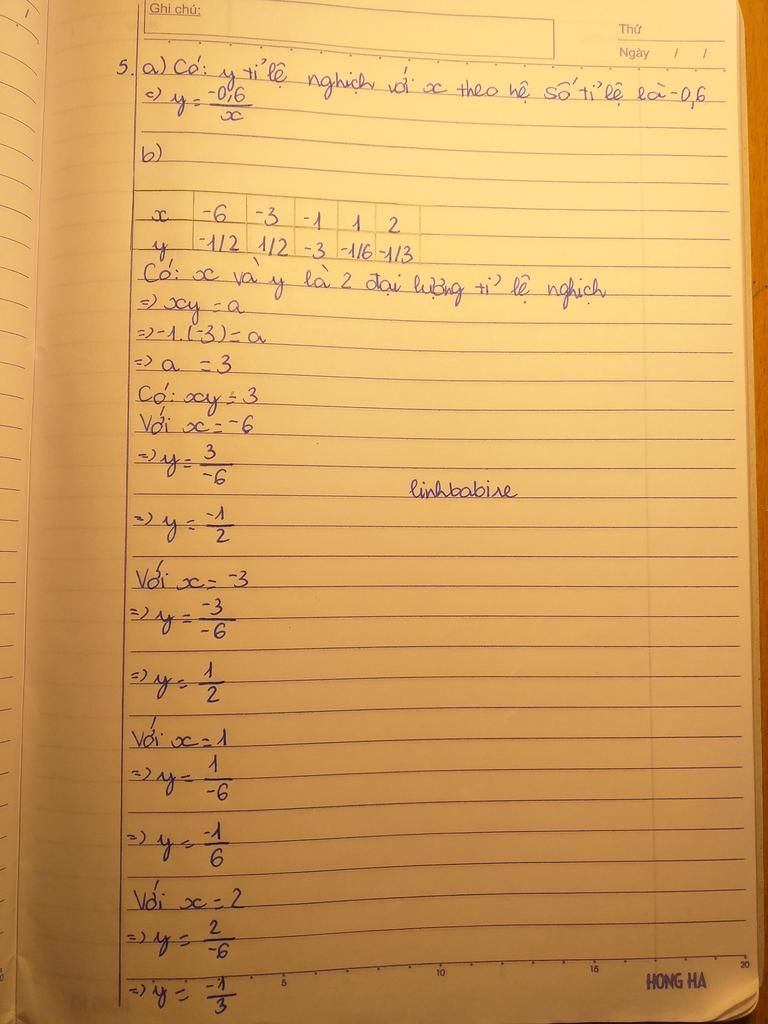 Ghi chú:
Thứ
Ngày / /
5. a) Có: y tỉ lệ nghịch với x theo hệ số tỉ lệ là -0,6
=> y = -0,6/x
b)
x -6 -3 -1 1 2
y -1/2 1/2 -3 -1/6 -1/3
Có: x và y là 2 đại lượng tỉ lệ nghịch
=> xy = a
=> -1.(-3) = a
=> a = 3
Có: xy = 3
Với x = -6
=> y = 3/-6
linhbabire
=> y = -1/2
Với x = -3
=> y = -3/-6
=> y = 1/2
Với x = 1
=> y = 1/-6
=> y = -1/6
Với x = 2
=> y = 2/-6
=> y = -1/3
5 10 15 20
HONG HA